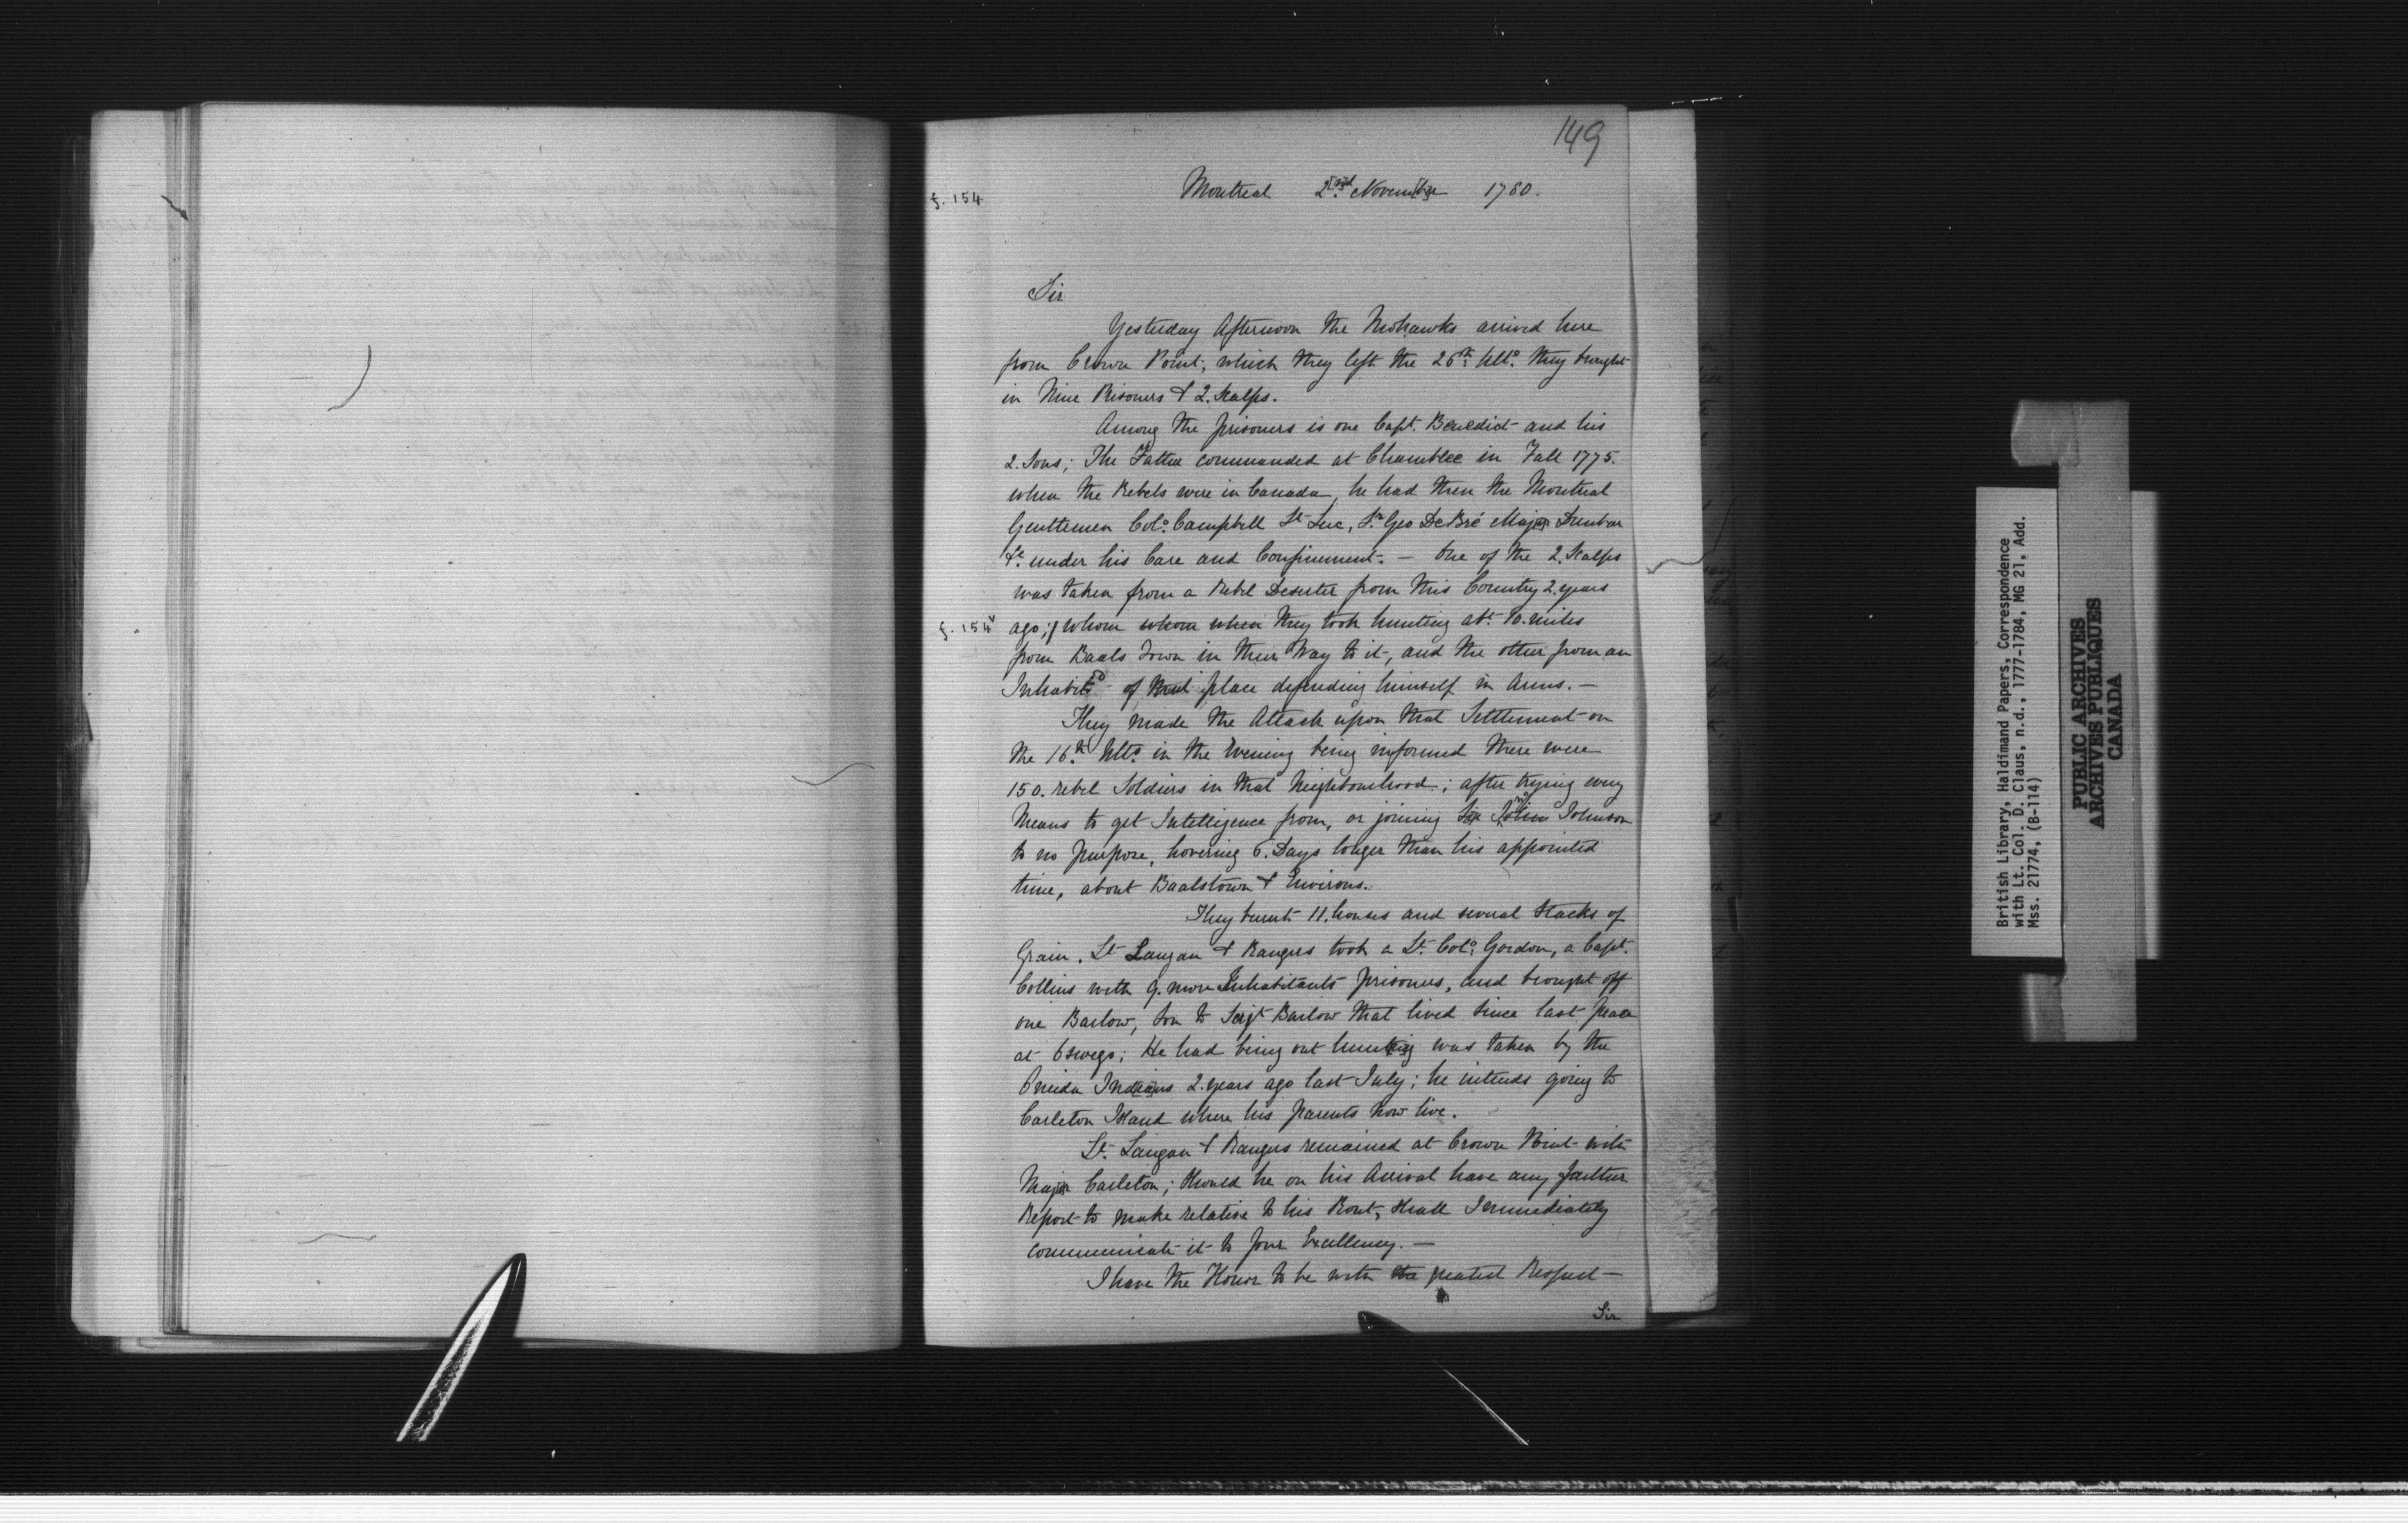 149
Montreal 2nd November 1780.
f. 154
Sir
Yesterday Afternoon the Mohawks arived here
from Crown Point; which they left the 26th Ulto. they brought
in Nine Prisoners & 2. Scalps.
Among the prisoners is one Capt. Benedict and his
2. Sons; The Father commanded at Chamblee in Fall 1775.
when the Rebels were in Canada, he had then the Montreal
Gentlemen Colo. Campbell St Luc, Sr Geo DeBré Major Dunbar
&c. under his Care and Confinement. — One of the 2. Scalps
was taken from a Rebel Deserter from this Country 2. years
f. 154v ago; / whom whom when they took hunting abt. 10. miles
from Baals Town in their Way to it, and the other from an
Inhabitt of that place defending himself in Arms. —
They made the Attack upon that Settlement on
the 16th Ulto. in the Evening being informed there were
150. rebel Soldiers in that Neighbourhood; after trying every
Means to get Intelligence from, or joining Sir John Johnson
to no purpose, hovering 6. Days longer than his appointed
time, about Baalstown & Environs.
They burnt 11. houses and several Stacks of
Grain. Lt Langan & Rangers took a Lt. Colo. Gordon, a Capt.
Collins with 9. more Inhabitants prisoners, and brought off
one Barlow, Son to Serjt Barlow that lived since last peace
at Oswego; He had being out hunting was taken by the
Oneida Indians 2. years ago last July; he intends going to
Carleton Island where his parents now live.
Lt. Langan & Rangers remained at Crown Point with
Major Carleton; Should he on his Arrival have any farther
Report to make relative to his Rout, Shall Immediately
communicate it to Your Excellency. —
I have the Honor to be with the greatest Respect —
Sir
British Library, Haldimand Papers, Correspondence
with Lt. Col. D. Claus, n.d., 1777-1784, MG 21, Add.
Mss. 21774, (B-114)
PUBLIC ARCHIVES
ARCHIVES PUBLIQUES
CANADA